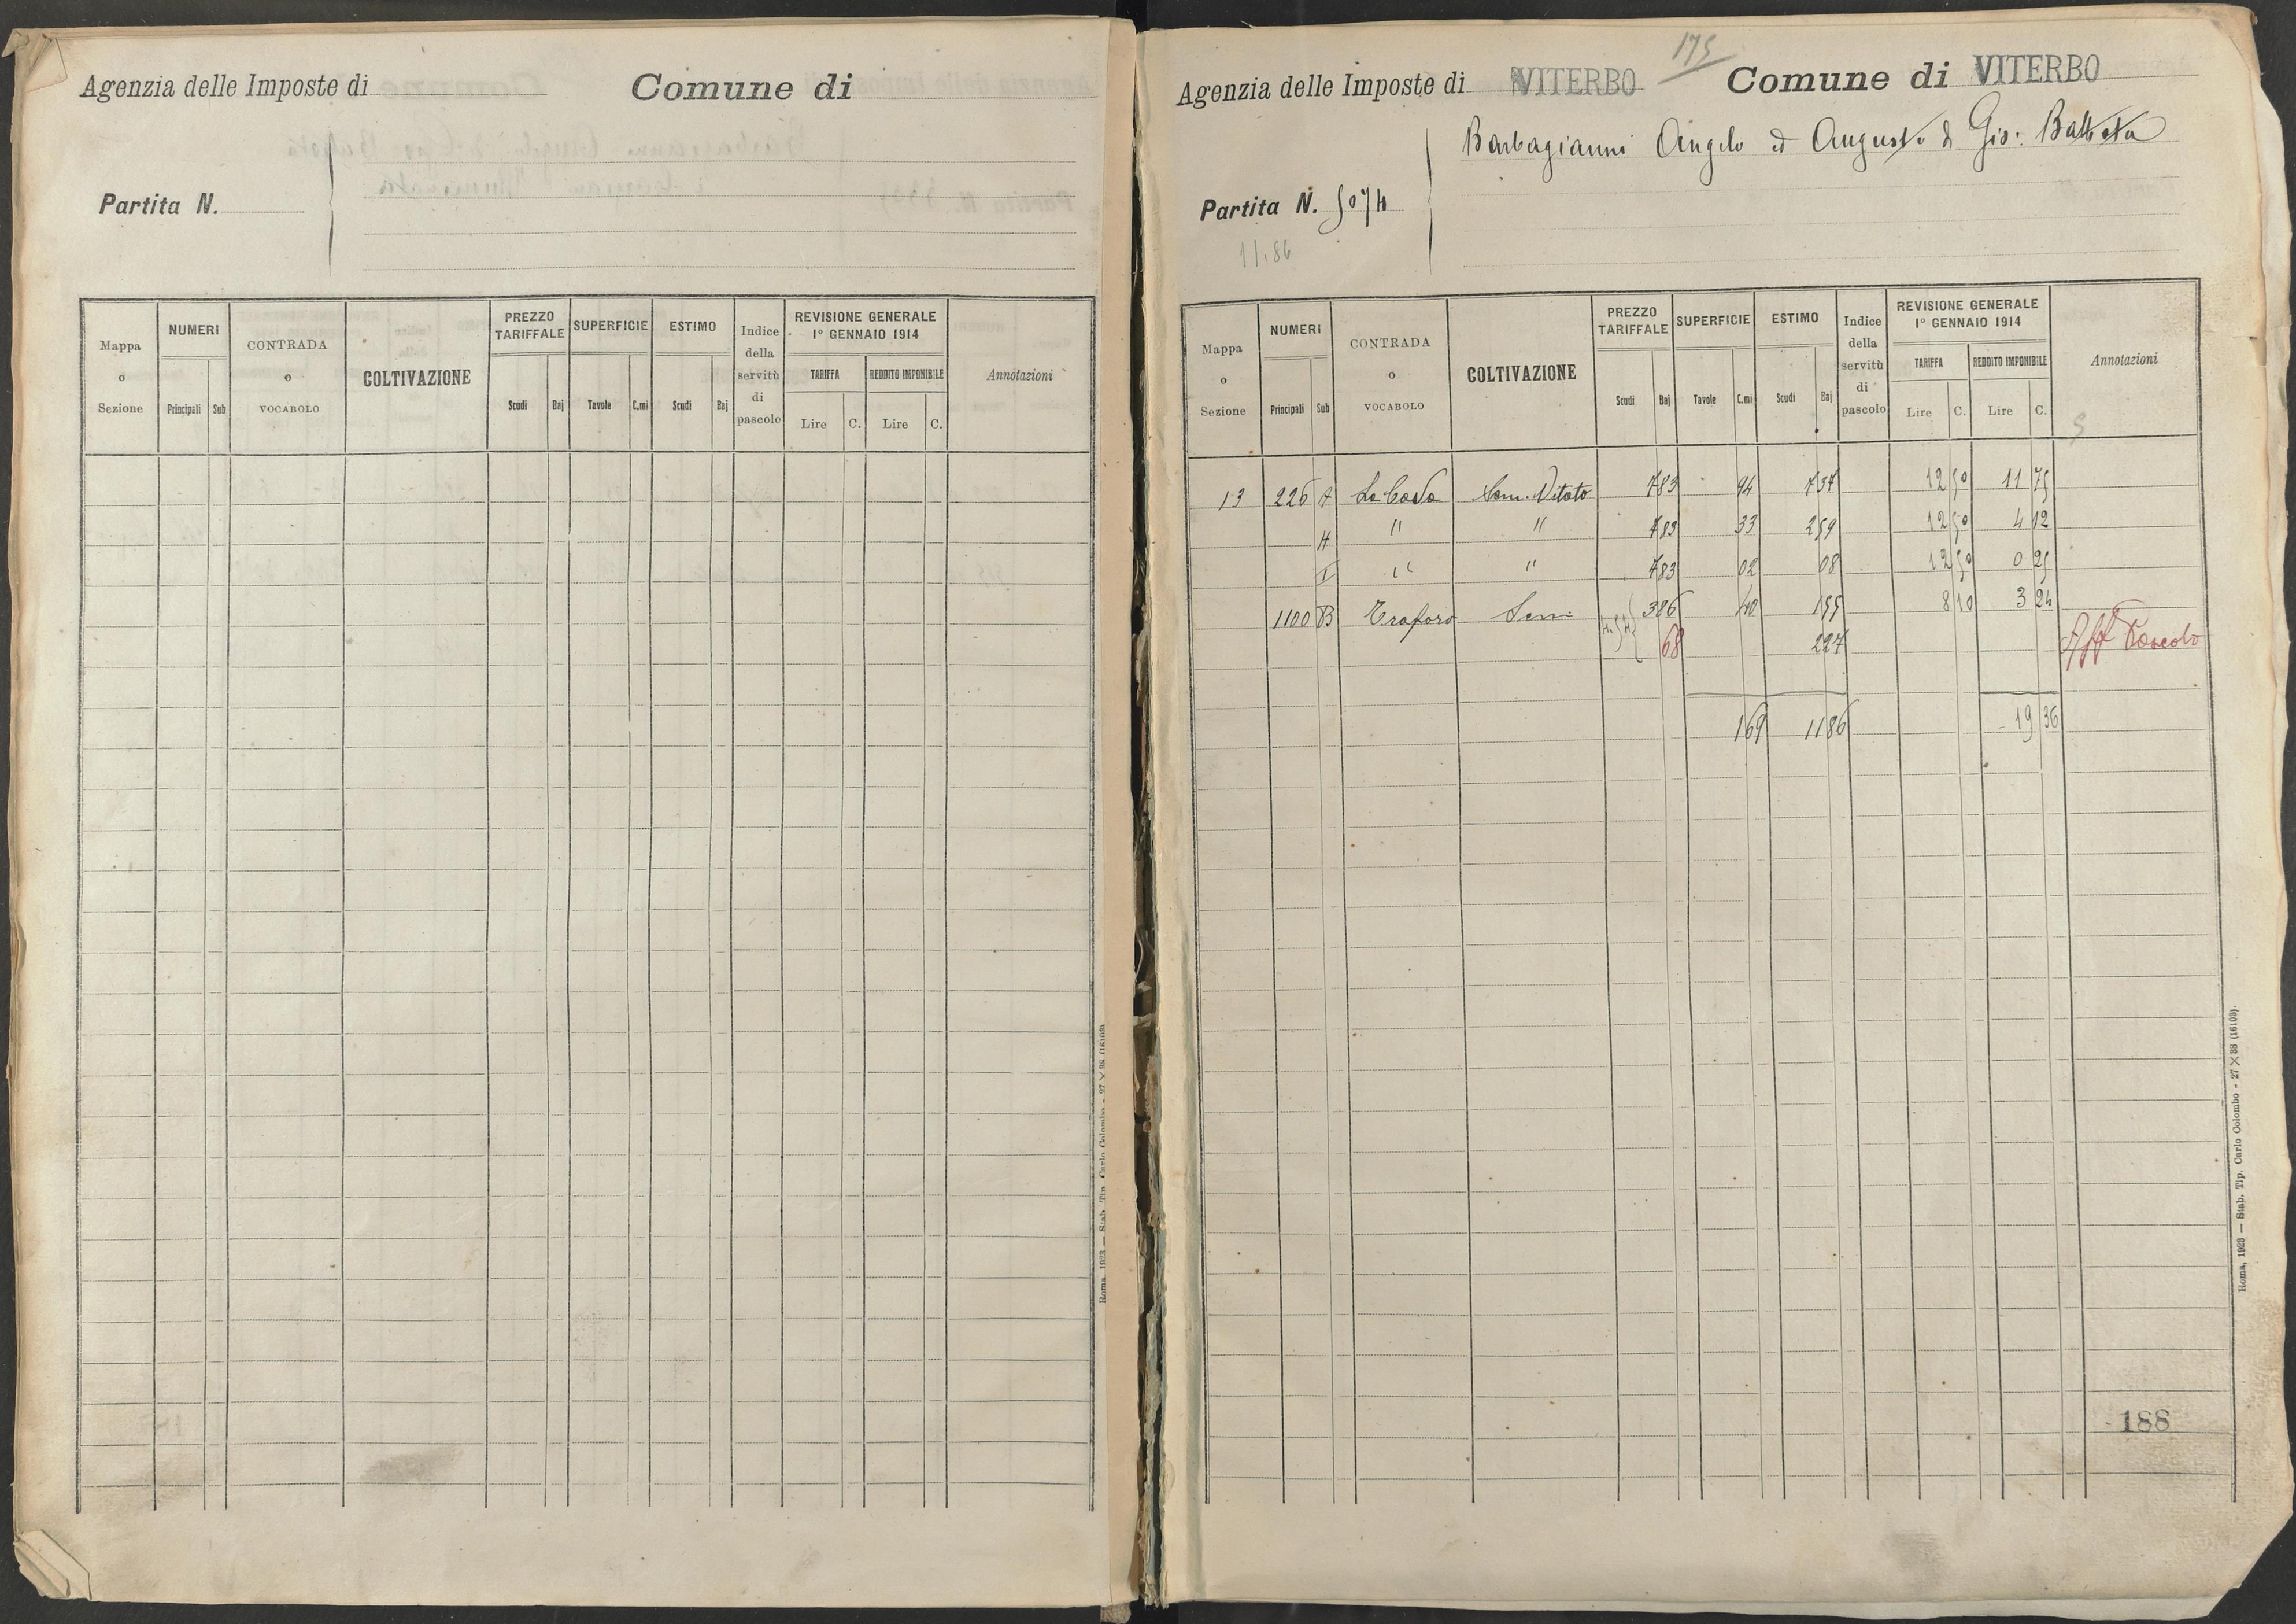 Agenzia delle Imposte di Comune di
Partita N.
Mappa o Sezione NUMERI Principali Sub CONTRADA o VOCABOLO COLTIVAZIONE PREZZO TARIFFALE Scudi Baj SUPERFICIE Tavole C.mi ESTIMO Scudi Baj Indice della servitù di pascolo REVISIONE GENERALE 1° GENNAIO 1914 TARIFFA Lire C. REDDITO IMPONIBILE Lire C. Annotazioni
Roma, 1923 — Stab. Tip. Carlo Colombo - 27 X 88 (16103)
175
Agenzia delle Imposte di VITERBO Comune di VITERBO
Barbagianni Angelo ed Augusto di Gio: Battista
Partita N. 5074
11.86
Mappa o Sezione NUMERI Principali Sub CONTRADA o VOCABOLO COLTIVAZIONE PREZZO TARIFFALE Scudi Baj SUPERFICIE Tavole C.mi ESTIMO Scudi Baj Indice della servitù di pascolo REVISIONE GENERALE 1° GENNAIO 1914 TARIFFA Lire C. REDDITO IMPONIBILE Lire C. Annotazioni
13 226 A Sem. Vitato 783 94 737 12 50 11 75
H " " 783 33 259 12 50 4 12
I " " 783 02 08 12 50 0 25
1100 B Traforo Sem 386 40 155 8 10 3 24
68 227 Aff Pascolo
169 1186 19 36
188
Roma, 1923 — Stab. Tip. Carlo Colombo - 27 X 88 (16103).